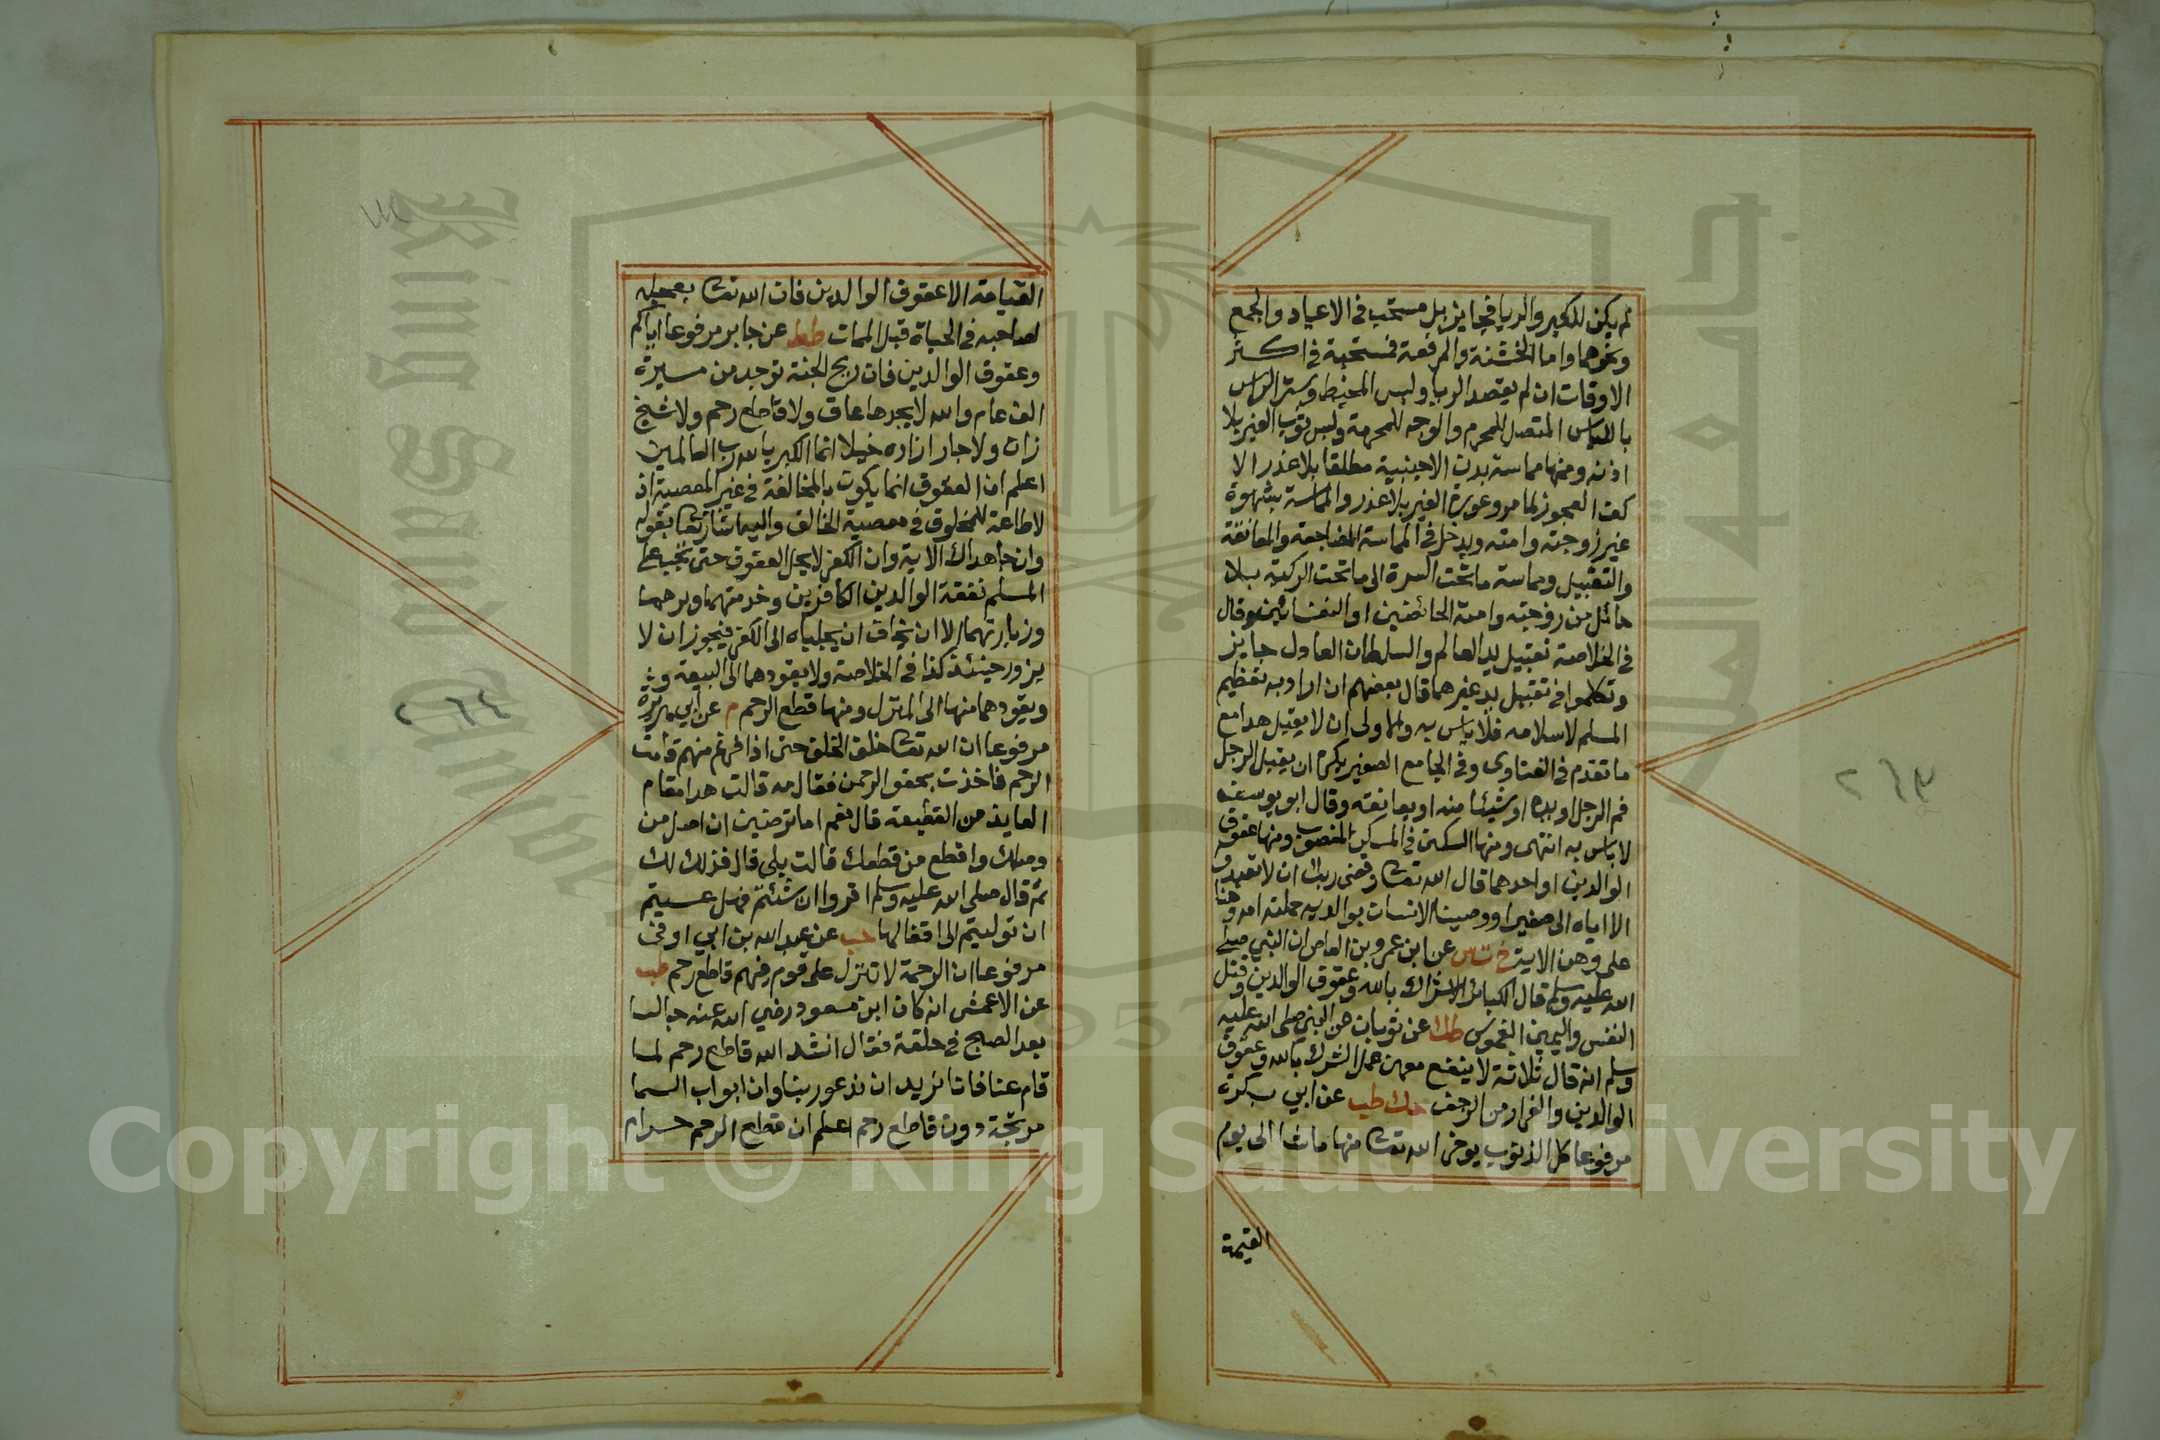 لم يكن للكبر والريا فجايز بل مستحب في الاعياد والجمع
ونحوهما واما الخشنة والمرقعة فمستحبة في اكثر
الاوقات ان لم يقصد الريا ولبس المخيط وستر الراس
باللباس المتصل للمحرم والوجه للمحرمة ولبس ثوب الغير بلا
اذنه ومنها مماسة بدن الاجنبية مطلقا بلا عذر الا
كف العجوز لما مر وعورة الغير بلا عذر والمماسة بشهوة
غير زوجته وامته ويدخل في المماسة المضاجعة والمعانقة
والتقبيل ومماسة ما تحت السرة الى ما تحت الركبة بلا
حائل من زوجته وامته الحائضتين او النفسائين وقال
في الخلاصة تقبيل يد العالم والسلطان العادل جايز
وتكلموا في تقبيل يد غيرهما قال بعضهم ان اراد به تعظيم
المسلم لاسلامه فلا باس به والاولى ان لا يقبل هذا مع
ما تقدم في الفتاوى وفي الجامع الصغير يكره ان يقبل الرجل
فم الرجل او يده او شيئا منه او يعانقه وقال ابو يوسف
لا باس به انتهى ومنها السكنى في المسكن المغصوب ومنها عقوق
الوالدين او احدهما قال الله تعا وقضى ربك ان لا تعبدوا
الا اياه الى صغيرا ووصينا الانسان بوالديه حملته امه وهنا
على وهن الاية خ ت س عن ابن عمرو بن العاص ان النبي صلى
الله عليه وسلم قال الكبائر الاشراك بالله وعقوق الوالدين وقتل
النفس واليمين الغموس طك عن ثوبان عن النبي صلى الله عليه
وسلم انه قال ثلاثة لا ينفع معهن عمل الشرك بالله وعقوق
الوالدين والفرار من الزحف حك طب عن ابي بكرة
مرفوعا كل الذنوب يوخر الله تعا منها ما شا الى يوم
القيمة
٢٦٣
القيامة الا عقوق الوالدين فان الله تعا يعجله
لصاحبه في الحياة قبل الممات طط عن جابر مرفوعا اياكم
وعقوق الوالدين فان ريح الجنة توجد من مسيرة
الف عام والله لا يجدها عاق ولا قاطع رحم ولا شيخ
زان ولا جار ازاره خيلا انما الكبريا لله رب العالمين
اعلم ان العقوق انما يكون بالمخالفة في غير المعصية اذ
لا طاعة للمخلوق في معصية الخالق واليه اشار تعا بقوله
وان جاهداك الاية وان الكفر لا يحل العقوق حتى يجب على
المسلم نفقة الوالدين الكافرين وخدمتهما وبرهما
وزيارتهما الا ان يخاف ان يجلباه الى الكفر فيجوز ان لا
يزور حينئذ كذا في الخلاصة ولا يقودهما الى البيعة
ويقودهما منها الى المنزل ومنها قطع الرحم م عن ابي هريرة
مرفوعا ان الله تعا خلق الخلق حتى اذا فرغ منهم قامت
الرحم فاخذت بحقو الرحمن فقال مه قالت هذا مقام
العايذ من القطيعة قال نعم اما ترضين ان اصل من
وصلك واقطع من قطعك قالت بلى قال فذلك لك
ثم قال صلى الله عليه وسلم اقروا ان شئتم فهل عسيتم
ان توليتم الى اقفالها حب عن عبد الله بن ابي اوفى
مرفوعا ان الرحمة لا تنزل على قوم فيهم قاطع رحم طب
عن الاعمش انه كان ابن مسعود رضي الله عنه جالسا
بعد الصبح في حلقة فقال انشد الله قاطع رحم لما
قام عنا فانا نريد ان ندعو ربنا وان ابواب السما
مرتجة دون قاطع رحم اعلم ان قطع الرحم حرام
٢٦٤
Copyright © King Saud University
King Saud University
جامعة الملك سعود
1957